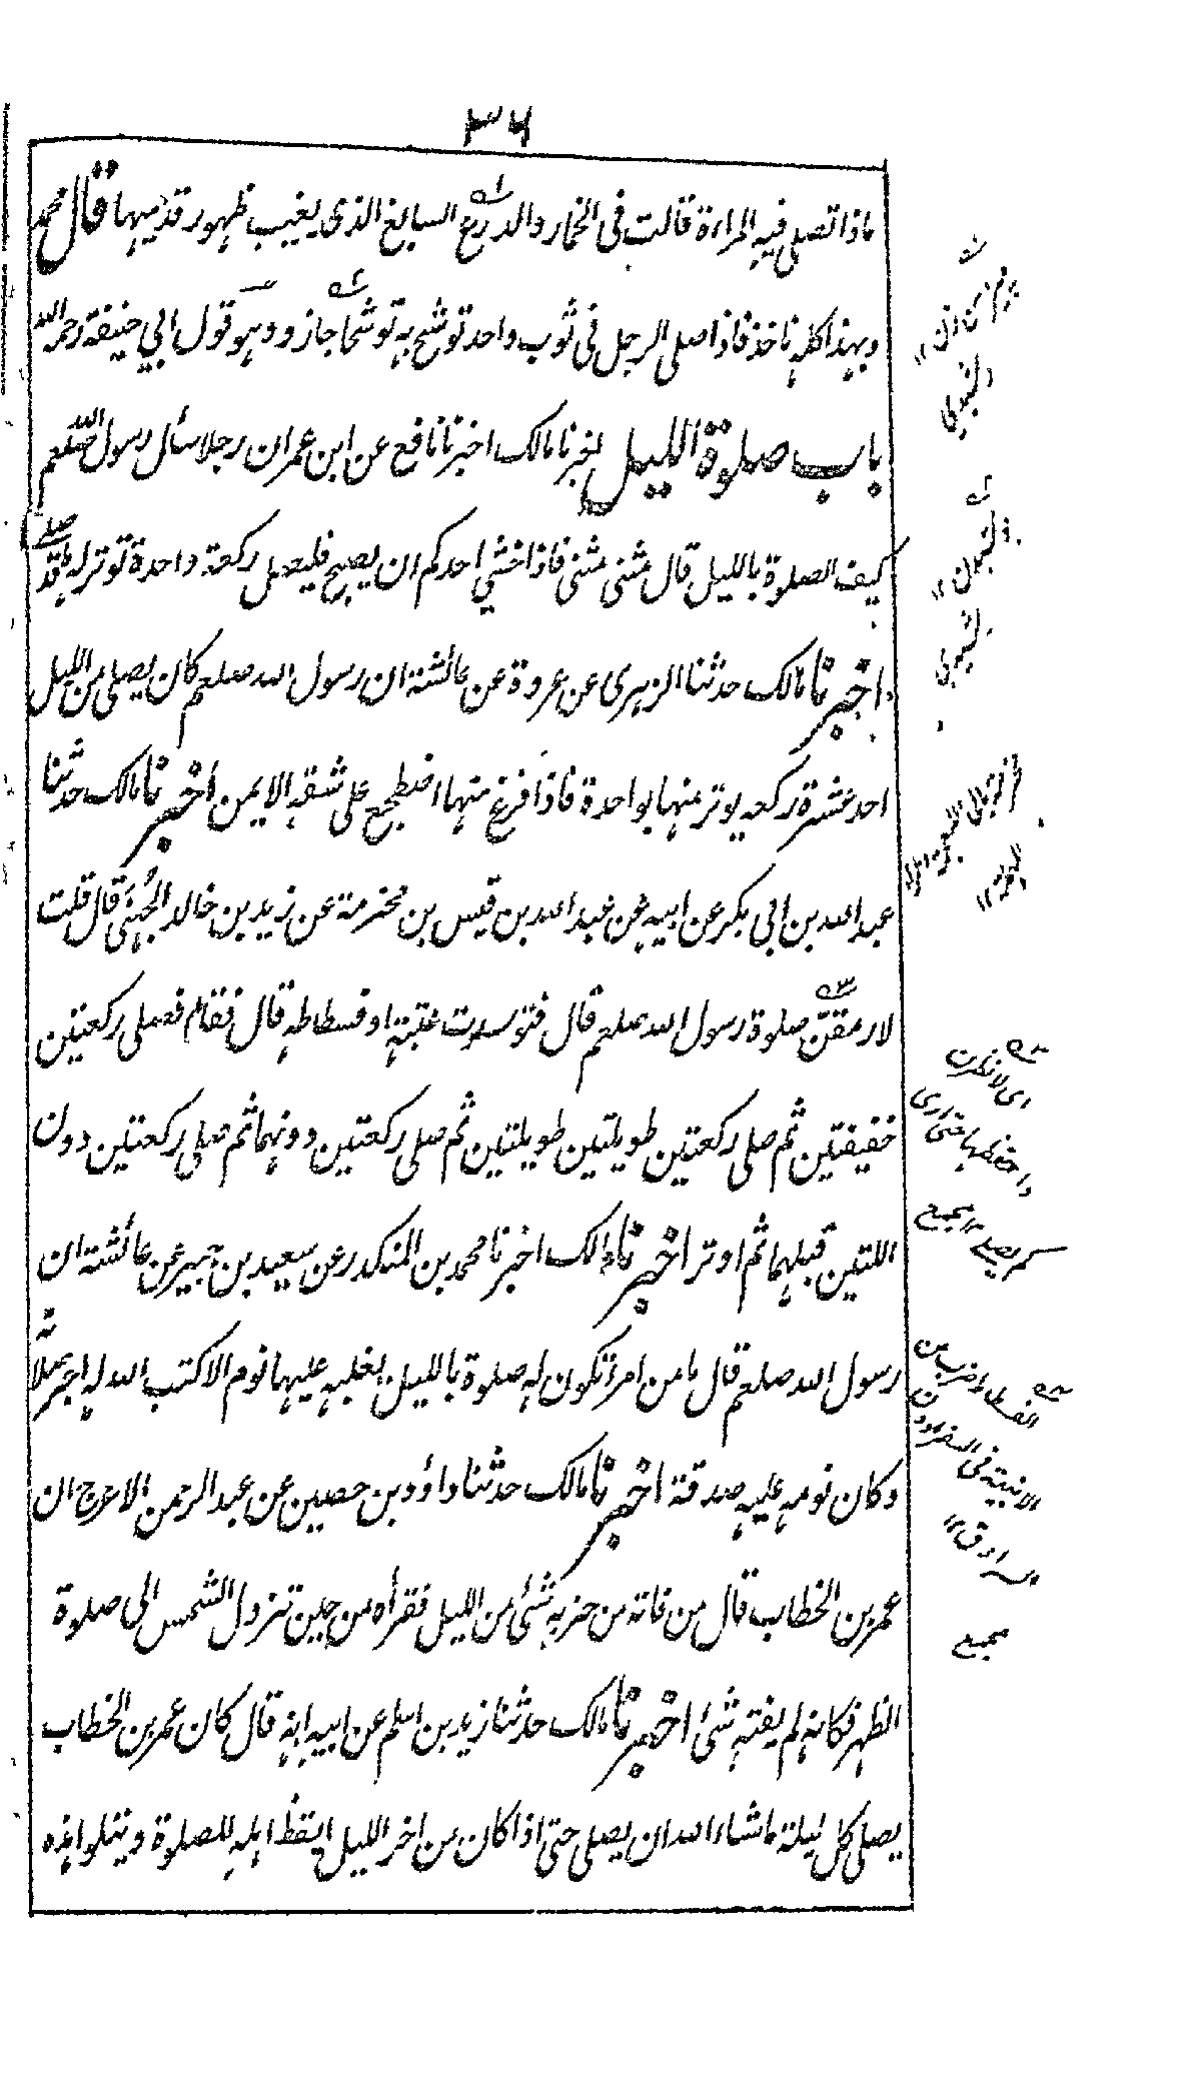 ٣٦
ماذا تصلى فيه المراءة قالت فى الخمار والدرع السابغ الذى يغيب ظهور قدميها قال محمد
وبهذا كله ناخذ فاذا صلى الرجل فى ثوب واحد توشح به توشحا جاز وهو قول ابي حنيفة رحمه الله
باب صلوة الليل اخبرنا مالك اخبرنا نافع عن ابن عمر ان رجلا سأل رسول الله صلعم
كيف الصلوة بالليل قال مثنى مثنى فاذا خشي احدكم ان يصبح فليصل ركعة واحدة توتر له ما قد صلى
اخبرنا مالك حدثنا الزهرى عن عروة عن عائشة ان رسول الله صلعم كان يصلى من الليل
احد عشرة ركعه يوتر منها بواحدة فاذا فرغ منها اضطجع على شقه الايمن اخبرنا مالك حدثنا
عبد الله بن ابى بكر عن ابيه عن عبد الله بن قيس بن مخرمة عن زيد بن خالد الجهني قال قلت
لارمقن صلوة رسول الله صلعم قال فتوسدت عتبته او فسطاطه قال فقام فصلى ركعتين
خفيفتين ثم صلى ركعتين طويلتين طويلتين ثم صلى ركعتين دونهما ثم صلى ركعتين دون
اللتين قبلهما ثم اوتر اخبرنا مالك اخبرنا محمد بن المنكدر عن سعيد بن جبير عن عائشة ان
رسول الله صلعم قال ما من امرئ تكون له صلوة بالليل يغلبه عليها نوم الا كتب الله له اجر صلاته
وكان نومه عليه صدقة اخبرنا مالك حدثنا داؤد بن حصين عن عبد الرحمن الاعرج ان
عمر بن الخطاب قال من فاته من حزبه شئ من الليل فقرأه من حين تزول الشمس الى صلوة
الظهر فكانه لم يفته شئ اخبرنا مالك حدثنا زيد بن اسلم عن ابيه انه قال كان عمر بن الخطاب
يصلى كل ليلة ماشاء الله ان يصلى حتى اذا كان من اخر الليل ايقظ اهله للصلوة ويتلوا هذه
اى لانظرن
واحفظها حتى ارى
كم يصلے ١٢ مجمع
الفسطاط ضرب من
الابنية فى السفر دون
السرادق ١٢
مجمع